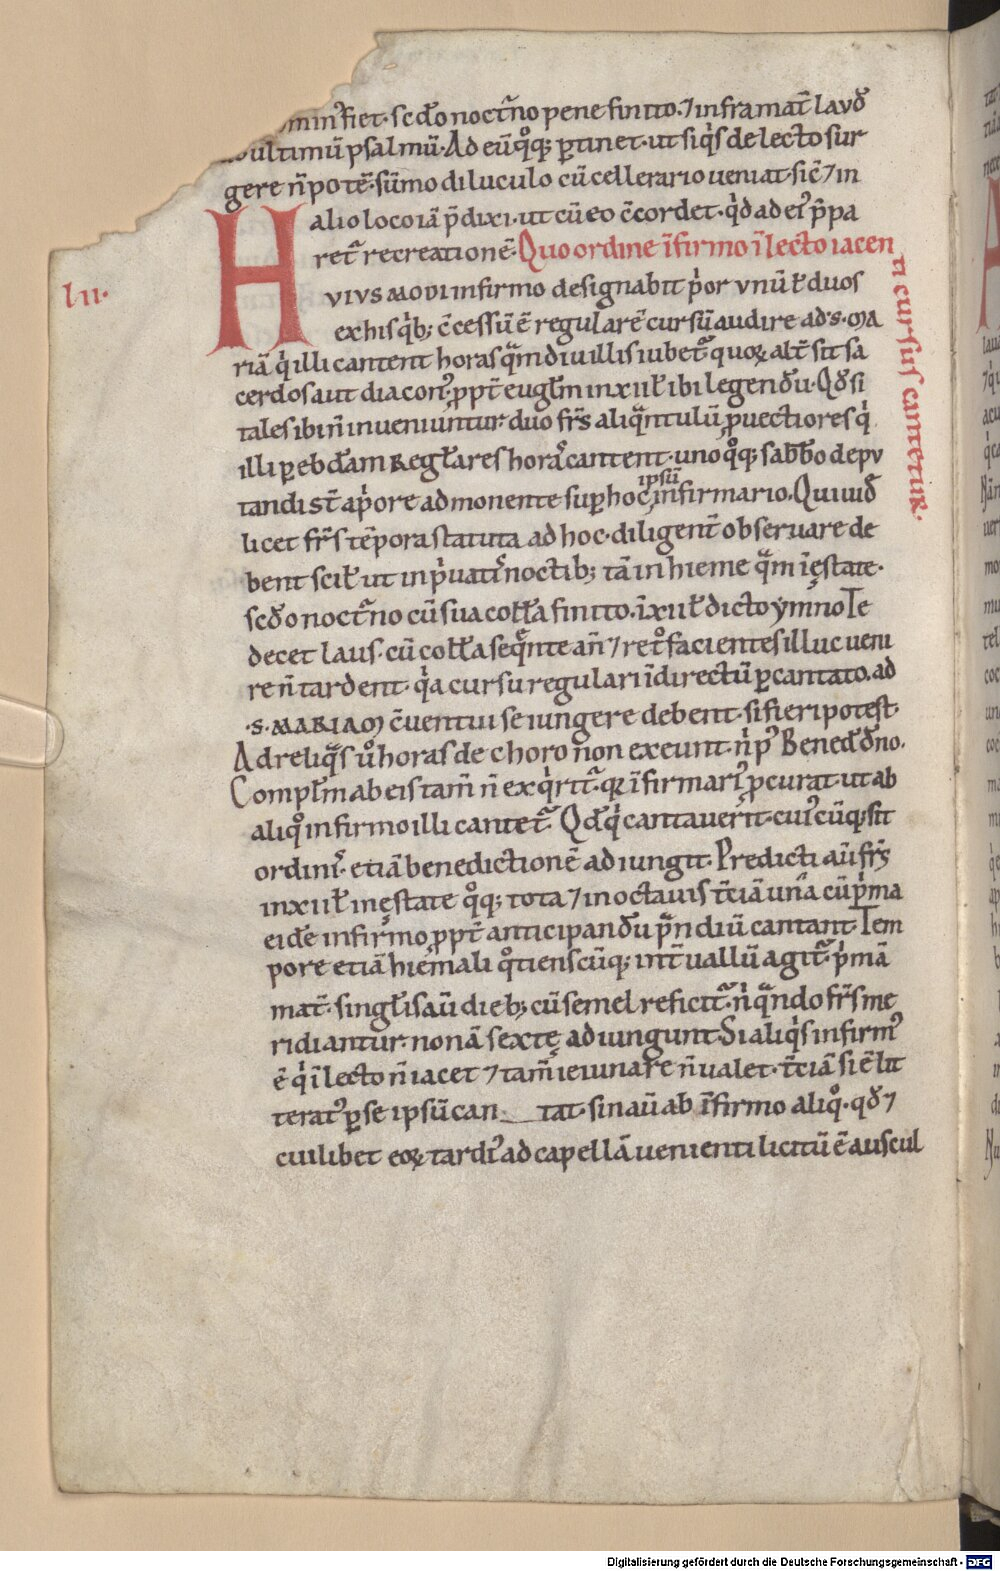 min᷒ fiet· sc̄do noct̾no pene finito· ⁊ infra mat̄ lavđ
ultimū psalmū· Ad eū q̊q; ꝑtinet· ut siq̇s de lecto sur
gere n̄ potē· sūmo diluculo cū cellerario ueniat· sic̄ ⁊ in
alio loco iā p̄dixi· ut cū eo c̄cordet· q̇d ad ei᷒ p̄pa
ret̾ recreationē· Quo ordine īfirmo ī lecto iacen
ti cursus cantetur·
lii·
HVIVS MODI infirmo designabit ṗor vnū ł duos
ex his q̇b; c̄cessū ē regularē cursū audire ad·s·MA
riā q̇ illi cantent horas qᷓmdiu illis iubet̾ quoꝝ alt̄ sit sa
cerdos aut diacon᷒ ꝓpt̄ eugłm in xii ł ibi legendū· Qđ si
tales ibi n̄ inueniuntur duo fr̄s aliqᷓntulū ꝓuectiores q̇
illi ꝑ ebdam Regłares horas cantent· uno q̊q; sabb̄o depv
tandi st̄ a ṗore admonente suꝑ hoc ipsū infirmario· Qui uiđ
licet fr̄s tēpora statuta ad hoc· diligent̄ obseruare de
bent scił ut in ṗuatis noctib; tā in hieme qᷓm ī ęstate·
scđo noct̾no cū sua cołła finito· ī xii ł dicto ẏmno Te
decet laus· cū cołła seqᷓnte an̄ ⁊ ret̊ facientes illuc ueni
re n̄ tardent· q̇a cursu regulari īdirectū ꝑcantato· ad
·S· MARIAM c̄uentui se iungere debent· si fieri potest·
Ad reliqᷓs ů horas de choro non exeunt· n̄ p᷒ Beneđ đno·
Complm̄ ab eis tam̄ n̄ exq̇rit̾ qꝛ īfirmari᷒ ꝓcurat· ut ab
aliq̊ infirmo illi cantet̾· Qđ q̇ cantauerit· cui᷒cūq; sit
ordinis· etiā benedictionē adiungit· Predicti aū fr̄s
in xii ł in ęstate q̊q; tota ⁊ in octauis t̄ciā una cū ṗma
eidē infirmo ꝓpt̄ anticipandū pᷓndiū cantant· Tem
pore etiā hiemali q̊tienscūq; int̄uallū agit̾· ṗmā
mat̄· singlis aū dieb; cū semel reficit̾ n̄ qᷓndo fr̄s me
ridiantur nonā sextę adiungunt· Si aliq̇s infirm᷒
ē q̇ ī lecto n̄ iacet ⁊ tam̄ ieiunare n̄ ualet· t̄ciā si ē lit
terat᷒ ꝑ se ipsū can tat· sin aū ab īfirmo aliq̊· qđ ⁊
cuilibet eoꝝ tardi᷒ ad capellā uenienti licitū ē auscul
Digitalisierung gefördert durch die Deutsche Forschungsgemeinschaft - DFG